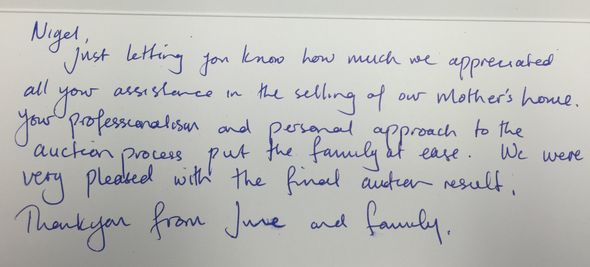 Nigel,
Just letting you know how much we appreciated
all your assistance in the selling of our Mother's home.
Your professionalism and personal approach to the
auction process put the family at ease. We were
very pleased with the final auction result.
Thankyou from June and family.